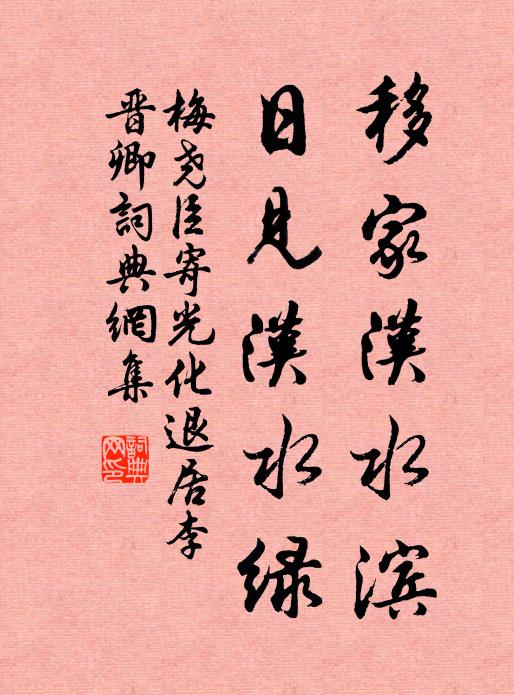 移家漢水滨
日見漢水绿
梅尧臣寄光化退居李
晋卿詞典網集
詞典
网印